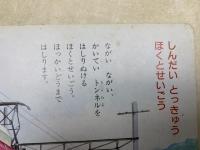 しんだい とっきゅう
ほくとせいごう
ながい ながい、
かいてい トンネルを
はしりぬける
ほくとせいごう。
ほっかいどうまで
はしります。